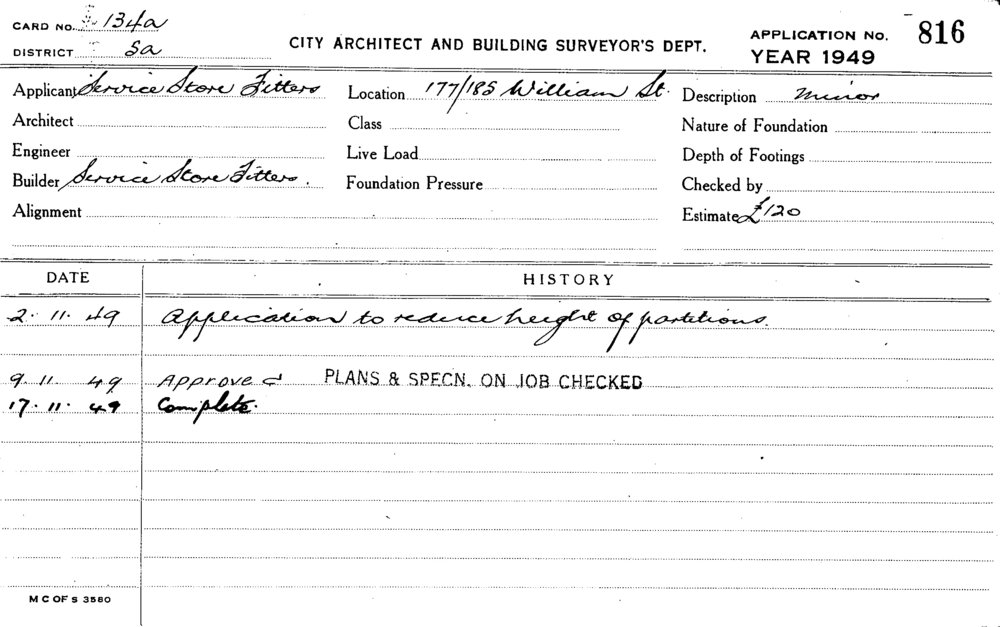 CARD NO. 134a
DISTRICT 5a
CITY ARCHITECT AND BUILDING SURVEYOR'S DEPT.
APPLICATION NO. 816
YEAR 1949
Applicant Service Store Fitters Location 177/185 William St. Description minor
Architect Class Nature of Foundation
Engineer Live Load Depth of Footings
Builder Service Store Fitters. Foundation Pressure Checked by
Alignment Estimate £120
DATE HISTORY
2. 11. 49 Application to reduce height of partitions.
9. 11. 49 Approved PLANS & SPECN. ON JOB CHECKED
17. 11. 49 Complete.
M C OF S 3580